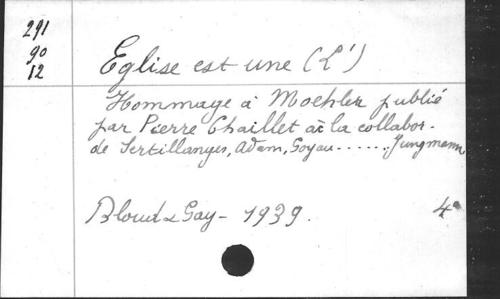 291
90
12
Eglise est une (L')
Hommage à Moehler publié
par Pierre Chaillet à la collabor.
de Sertillanges, Adam, Goyau ....... Jungmann
Bloud & Gay - 1939. 4°